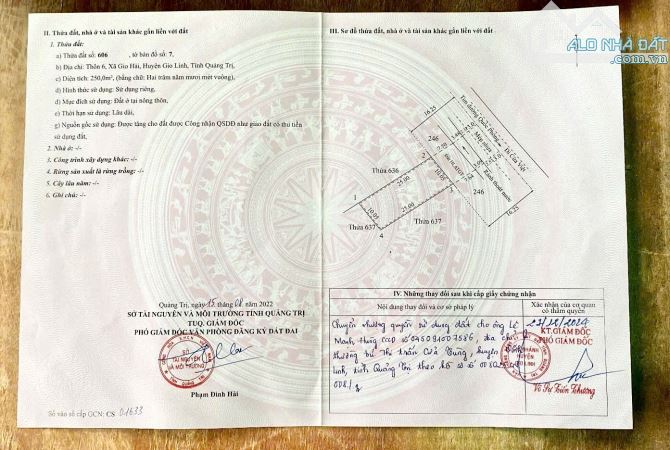 II. Thửa đất, nhà ở và tài sản khác gắn liền với đất
1. Thửa đất:
a) Thửa đất số: 606, tờ bản đồ số: 7,
b) Địa chỉ: Thôn 6, Xã Gio Hải, Huyện Gio Linh, Tỉnh Quảng Trị,
c) Diện tích: 250,0m², (bằng chữ: Hai trăm năm mươi mét vuông),
d) Hình thức sử dụng: Sử dụng riêng,
đ) Mục đích sử dụng: Đất ở tại nông thôn,
e) Thời hạn sử dụng: Lâu dài,
g) Nguồn gốc sử dụng: Được tặng cho đất được Công nhận QSDĐ như giao đất có thu tiền
sử dụng đất,
2. Nhà ở: -/-
3. Công trình xây dựng khác: -/-
4. Rừng sản xuất là rừng trồng: -/-
5. Cây lâu năm: -/-
6. Ghi chú: -/-
Quảng Trị, ngày 15 tháng năm 2022
SỞ TÀI NGUYÊN VÀ MÔI TRƯỜNG TỈNH QUẢNG TRỊ
TUQ. GIÁM ĐỐC
PHÓ GIÁM ĐỐC VĂN PHÒNG ĐĂNG KÝ ĐẤT ĐAI
SỞ
TÀI NGUYÊN
VÀ MÔI TRƯỜNG
Phạm Đình Hải
Số vào sổ cấp GCN: CS 01633
III. Sơ đồ thửa đất, nhà ở và tài sản khác gắn liền với đất
ALO NHÀ ĐẤT
.com.vn
Tim đường Quốc Phòng
Đi Cửa Việt
16.25
246
Mép nhựa
Rãnh thoát nước
3.00
2.00
Thửa 636
25.00
2
10.05
3
246
16.25
1
10.05
25.00
4
Thửa 637
Thửa 637
IV. Những thay đổi sau khi cấp giấy chứng nhận
Nội dung thay đổi và cơ sở pháp lý
Xác nhận của cơ quan
có thẩm quyền
Chuyển nhượng quyền sử dụng đất cho ông Lê
Mạnh Hùng CCCD số 045091007586, địa chỉ
thường trú Thị trấn Cửa Tùng, huyện Vĩnh
Linh, tỉnh Quảng Trị theo hồ sơ số
23/12/2024
KT. GIÁM ĐỐC
PHÓ GIÁM ĐỐC
Võ Sỹ Tiến Thương